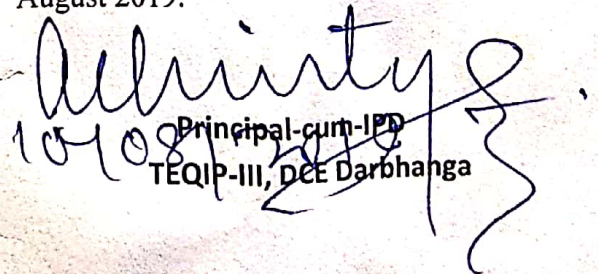 August 2019.
Achinty
10/08/2019
Principal-cum-IPD
TEQIP-III, DCE Darbhanga